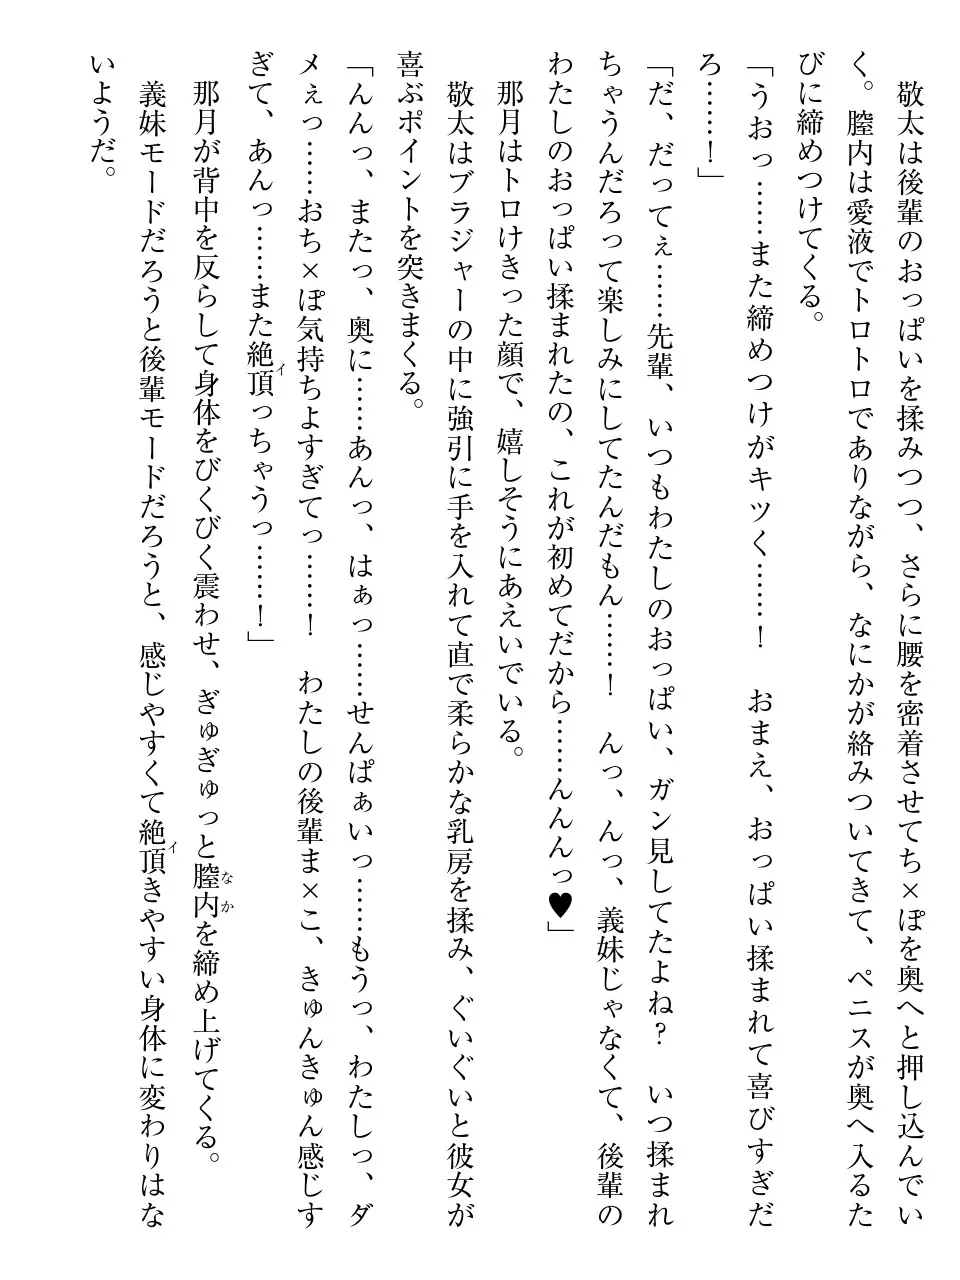 敬太は後輩のおっぱいを揉みつつ、さらに腰を密着させてち×ぽを奥へと押し込んでい
く。膣内は愛液でトロトロでありながら、なにかが絡みついてきて、ペニスが奥へ入るた
びに締めつけてくる。
「うおっ……また締めつけがキツく……！　おまえ、おっぱい揉まれて喜びすぎだ
ろ……！」
「だ、だってぇ……先輩、いつもわたしのおっぱい、ガン見してたよね？　いつ揉まれ
ちゃうんだろって楽しみにしてたんだもん……！　んっ、んっ、義妹じゃなくて、後輩の
わたしのおっぱい揉まれたの、これが初めてだから……んんんっ♥」
那月はトロけきった顔で、嬉しそうにあえいでいる。
敬太はブラジャーの中に強引に手を入れて直で柔らかな乳房を揉み、ぐいぐいと彼女が
喜ぶポイントを突きまくる。
「んんっ、またっ、奥に……あんっ、はぁっ……せんぱぁいっ……もうっ、わたしっ、ダ
メぇっ……おち×ぽ気持ちよすぎてっ……！　わたしの後輩ま×こ、きゅんきゅん感じす
ぎて、あんっ……また絶頂イっちゃうっ……！」
那月が背中を反らして身体をびくびく震わせ、ぎゅぎゅっと膣内なかを締め上げてくる。
義妹モードだろうと後輩モードだろうと、感じやすくて絶頂イきやすい身体に変わりはな
いようだ。